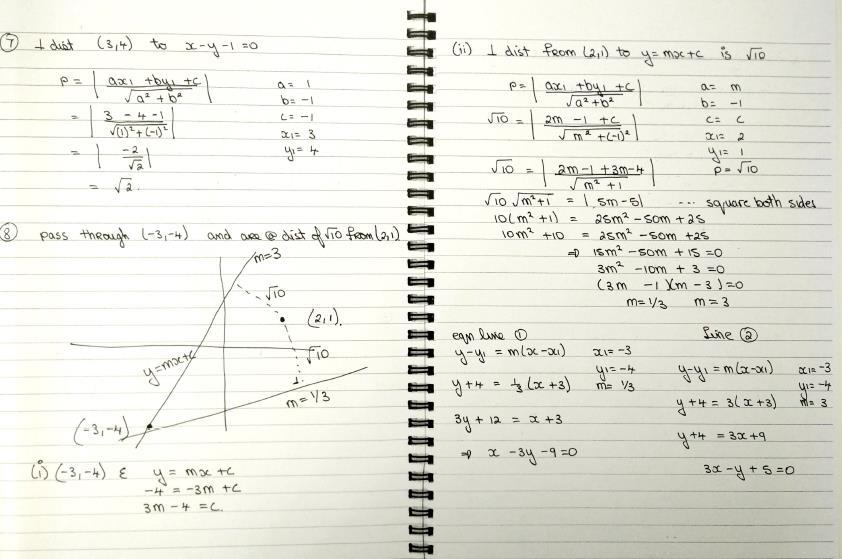 ⑦ ⊥ dist (3,4) to x-y-1=0
P = | (ax₁ + by₁ + c) / √(a² + b²) |   a = 1
b = -1
= | (3 - 4 - 1) / √((1)² + (-1)²) |   c = -1
x₁ = 3
= | -2 / √2 |   y₁ = 4
= √2.
⑧ pass through (-3,-4) and are @ dist of √10 from (2,1)
m=3
√10
(2,1).
y=mx+c
√10
m = 1/3
(-3,-4)
(i) (-3,-4) ε y = mx + c
-4 = -3m + c
3m - 4 = c.
(ii) ⊥ dist from (2,1) to y = mx + c is √10
P = | (ax₁ + by₁ + c) / √(a² + b²) |   a = m
b = -1
√10 = | (2m - 1 + c) / √(m² + (-1)²) |   c = c
x₁ = 2
y₁ = 1
√10 = | (2m - 1 + 3m - 4) / √(m² + 1) |   P = √10
√10 √(m²+1) = |5m-5| ... square both sides
10(m² + 1) = 25m² - 50m + 25
10m² + 10 = 25m² - 50m + 25
⇒ 15m² - 50m + 15 = 0
3m² - 10m + 3 = 0
(3m - 1)(m - 3) = 0
m = 1/3   m = 3
eqn line ①
y-y₁ = m(x-x₁)   x₁ = -3
y₁ = -4
y+4 = 1/3 (x+3)   m = 1/3
3y + 12 = x + 3
⇒ x - 3y - 9 = 0
Line ②
y-y₁ = m(x-x₁)   x₁ = -3
y₁ = -4
y+4 = 3(x+3)   m = 3
y+4 = 3x+9
3x - y + 5 = 0